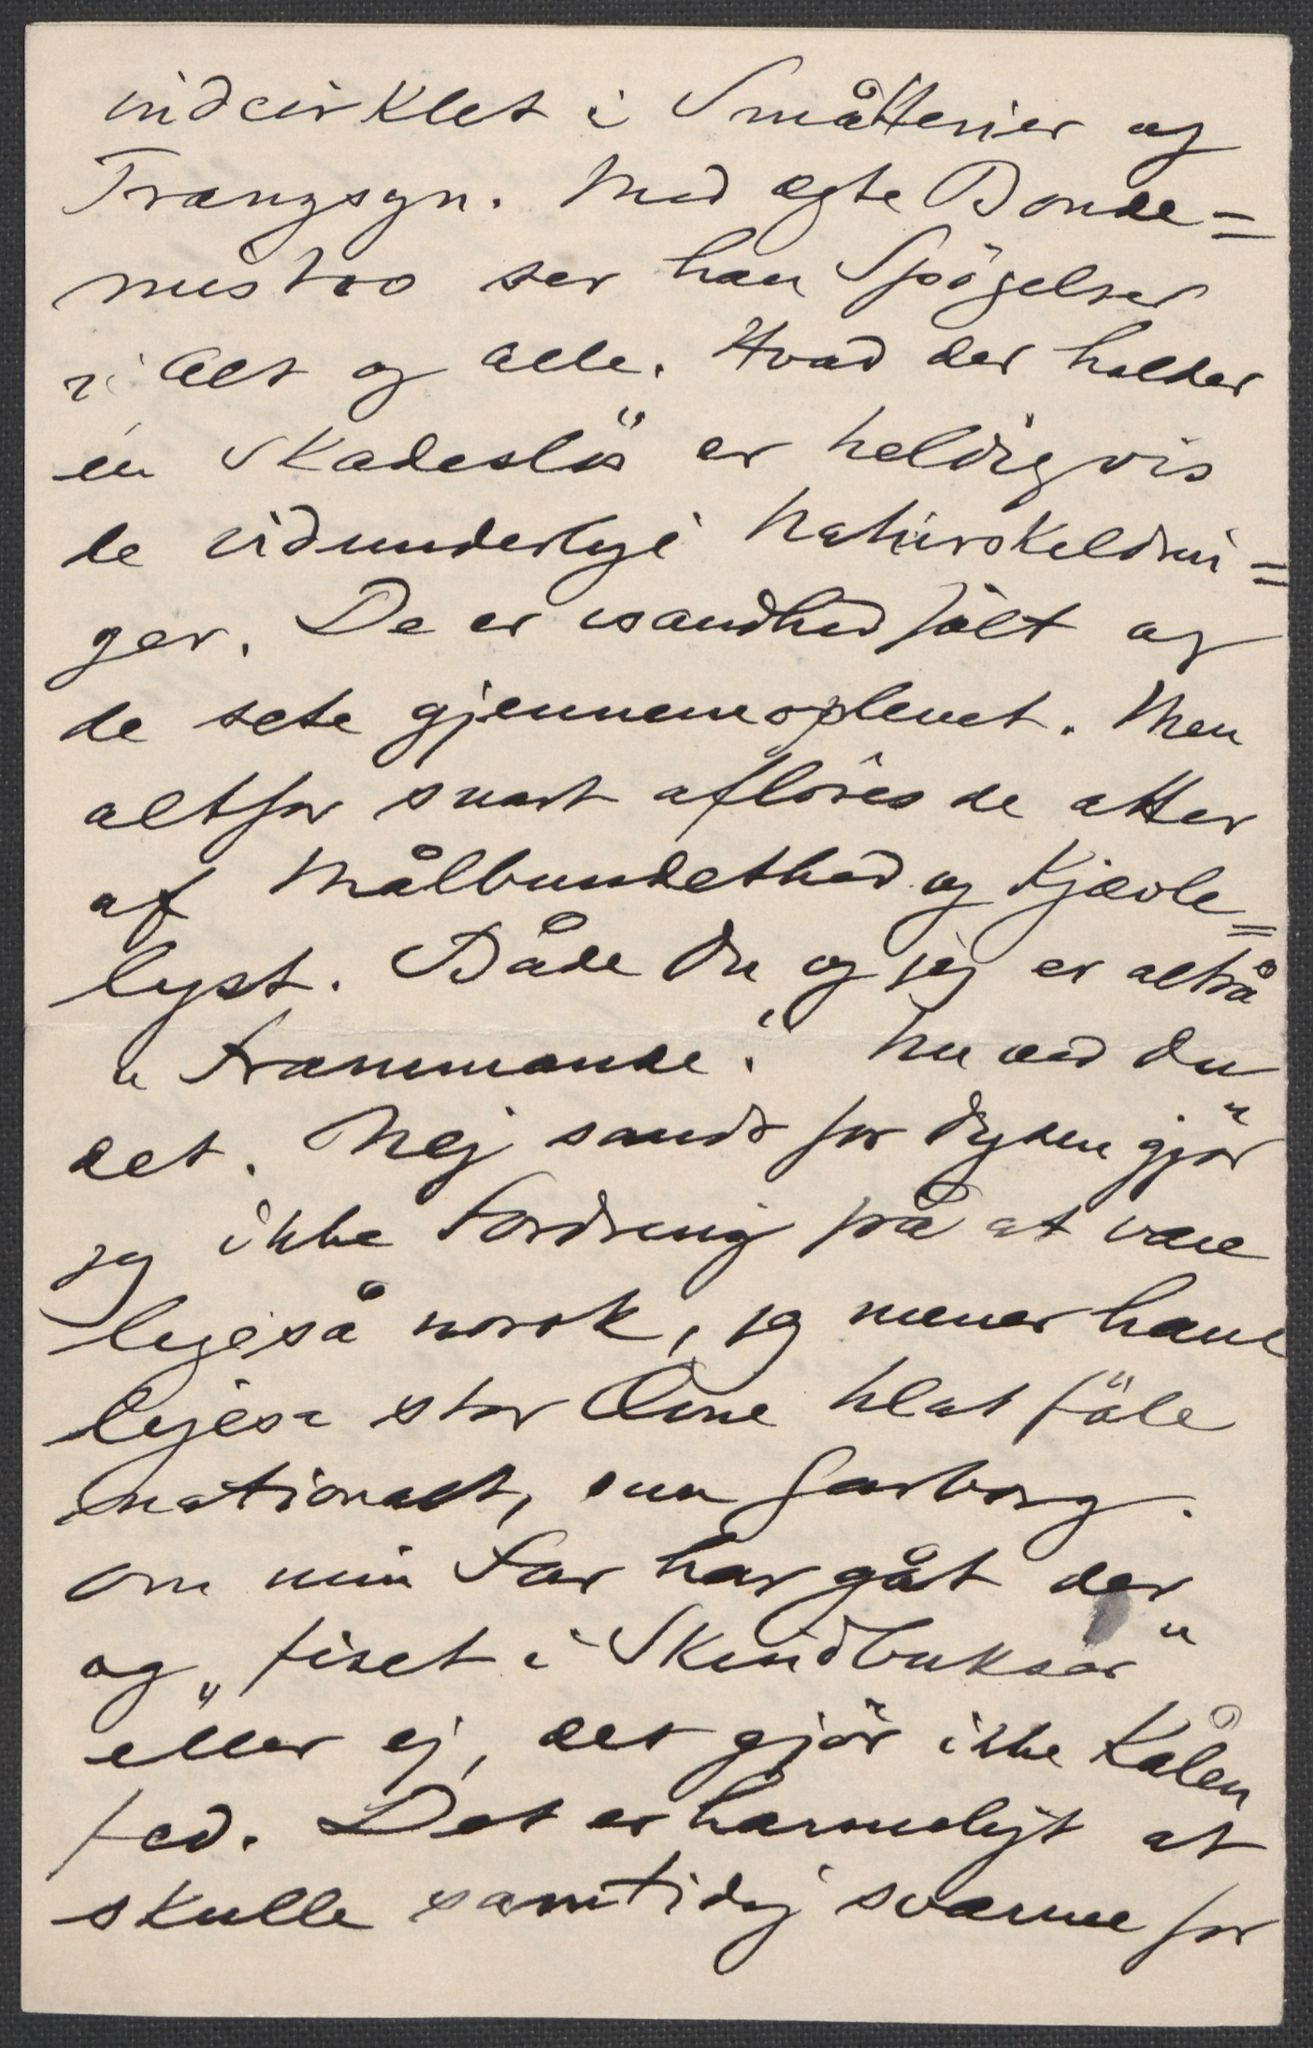 indcirklet i Småtterier og
Trangsyn. Med ægte Bonde=
mistro ser han Spögelser
i Alt og alle. Hvad der holder
én skadeslös er heldigvis
de vidunderlige Naturskeldrin=
ger. De er isandhed fölt og
de sete gjennemoplevet. Men
altfor snart aflöses de atter
af Målbundethed og Kjævle=
lyst. Både Du og jeg er altså
„ frammande". Nu ved Du
det. Nej sandt for Dyden gjör
jeg ikke Fordring på at være
ligeså norsk, jeg mener have
ligeså stor Evne til at föle
nationalt, som Garborg.
Om min Far har gåt der
og „fiset i Skindbukser"
eller ej, det gjör ikke Kålen
fed. Det er harmeligt at
skulle samtidig sværme for